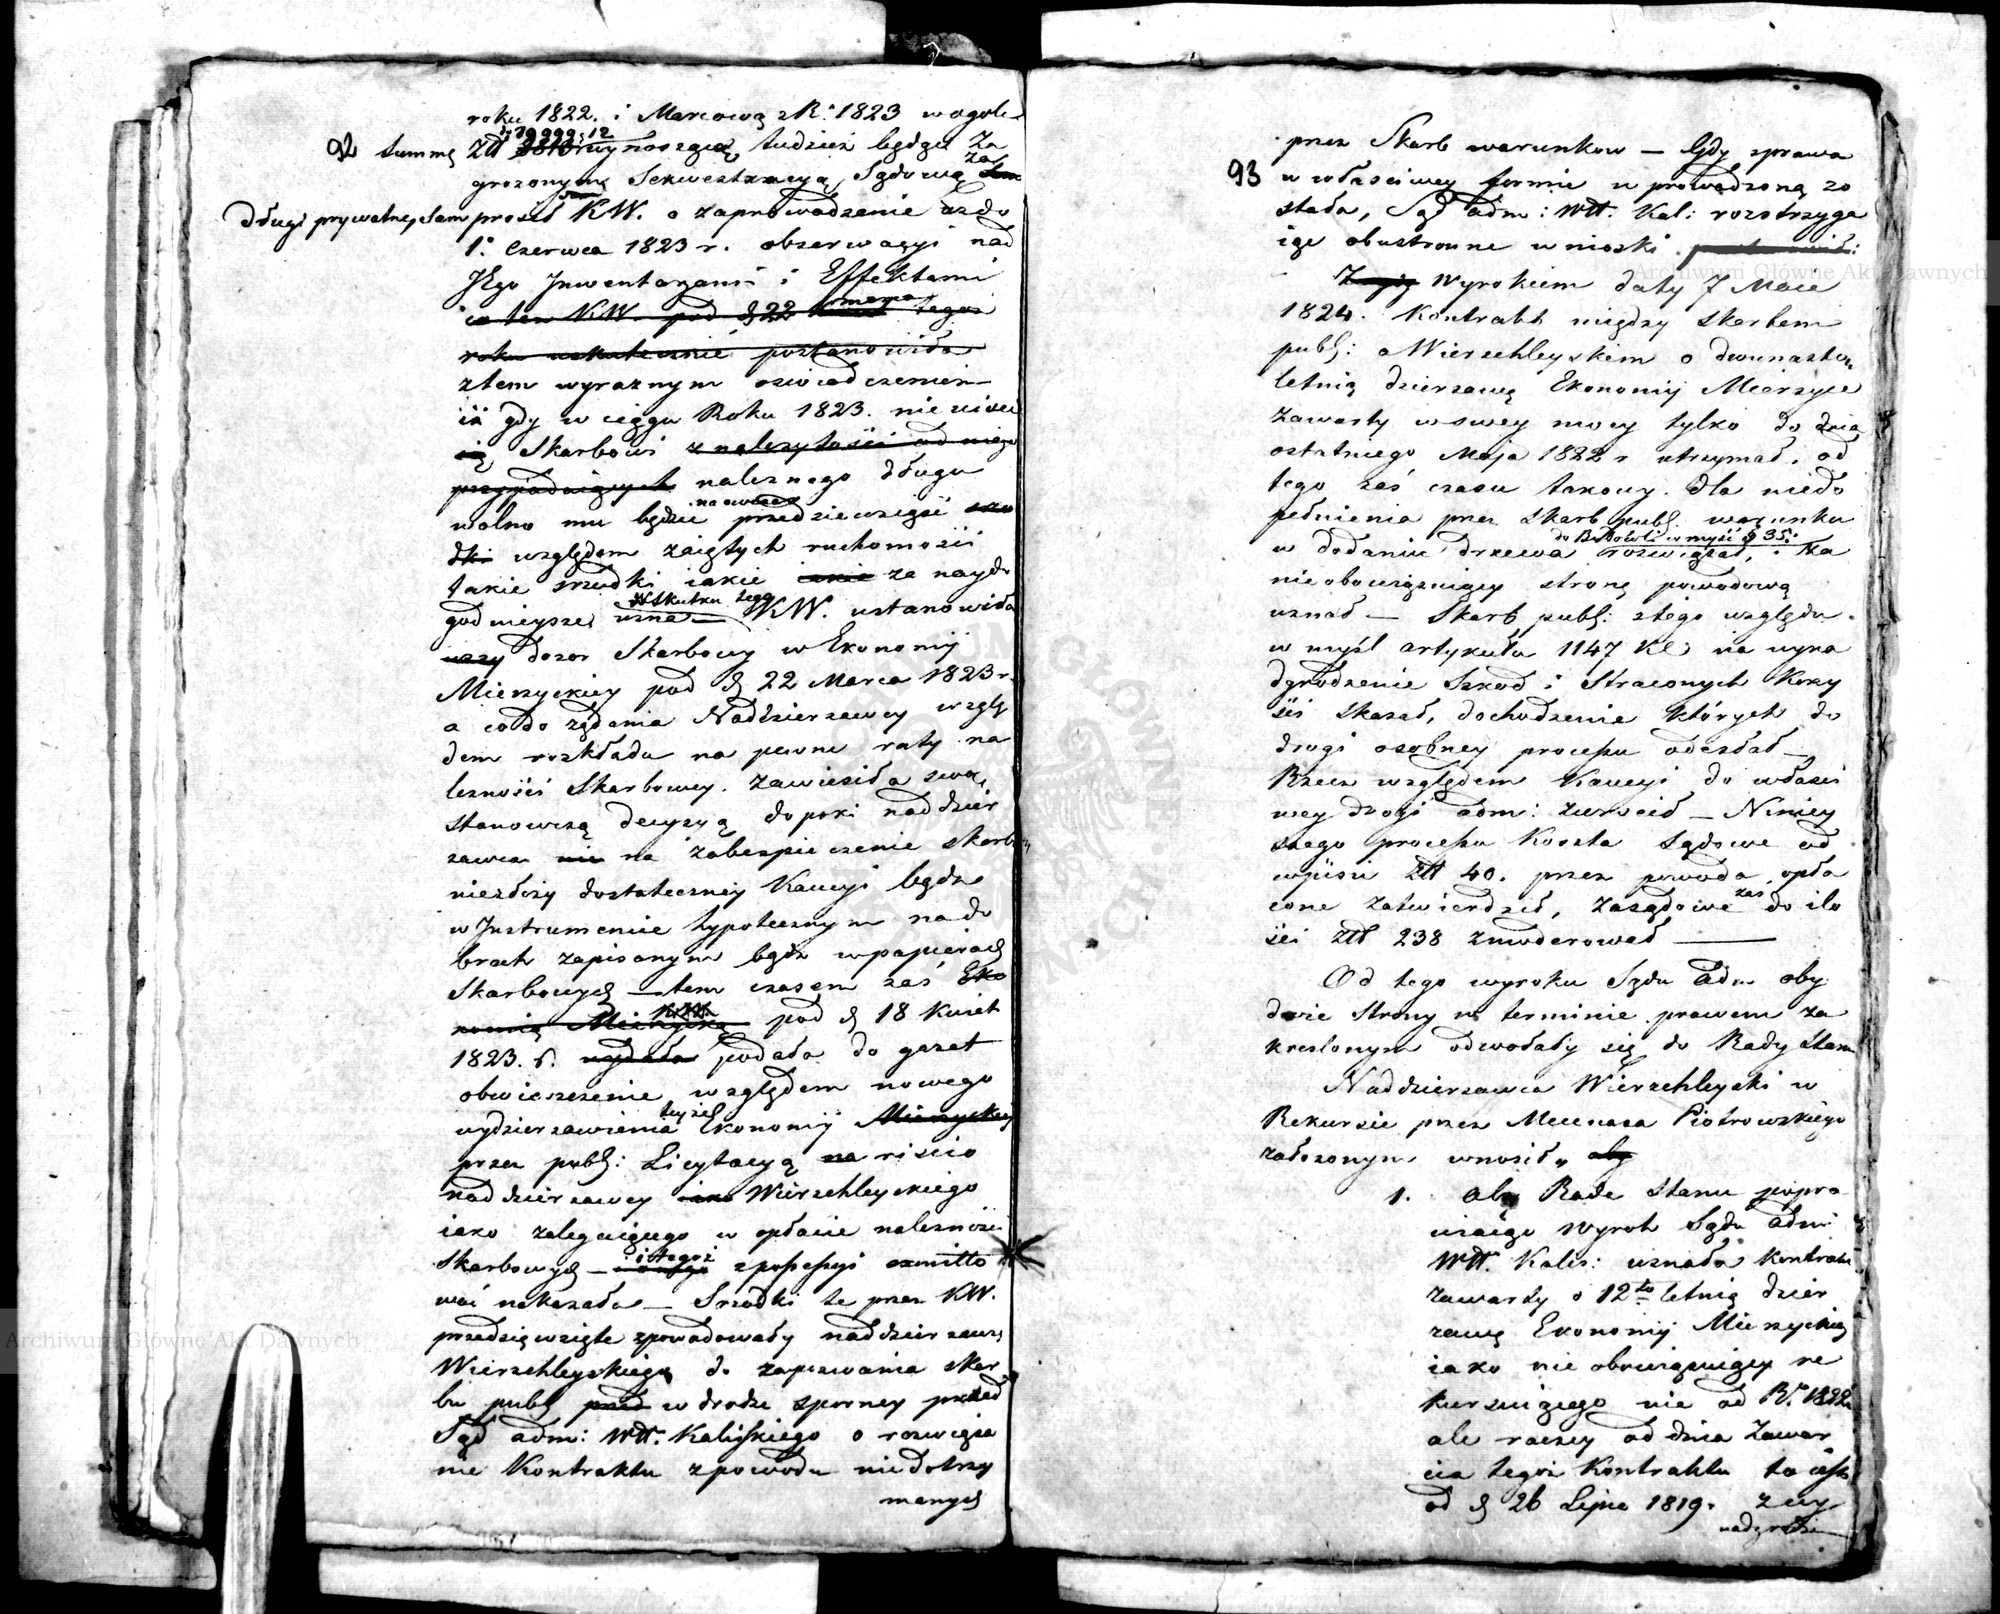 roku 1822. i Marcową z R: 1823 w ogole
92 summę Złł do 19999: 12 wynoszącą, tudzież będąc za
grożonym Sekwestracyą Sądową za
długi prywatne, sam prosił KW. o zaprowadzenie aż do
1: Czerwca 1823 r. obserwacyi nad
Jego Inwentarzami i Effektami
co ten KW. pod d 22 marca tegoż
roku uskutecznić postanowiła
z tem wyraznym oswiadczeniem
iż gdy w ciągu Roku 1823. nie uiści
się Skarbowi z należytości od niego
przypadaiących należnego długu
wolno mu będzie przedsiewziąść
dki względem zaiętych ruchomości
takie srzodki iakie iakie za naydo
godnieysze uzna — W skutku tego KW. ustanowiła
dozor Skarbowy w Ekonomij
Mierzyckiey pod d 22 Marca 1823 r.
a co do żądania Naddzierzawcy wzglę
dem rozkładu na pewne raty na
leżności Skarbowey. zawiesiła swą
stanowczą decyzyą dopoki naddzier
zawca nie na zabezpieczenie skarbu
niezłoży dostateczney Kaucyi bądz
w Instrumencie hypotecznym na do
brach zapisanym bądz w papierach
Skarbowych — tem czasem zaś Eko
nomią Mierzycką pod d 18 Kwiet
1823. r. wydała podała do gazet
obwieszczenie względem nowego
wydzierzawienia teyże Ekonomij Mierzyckiey
przez publ: Licytacyą na risico
naddzierzawcy iako Wierzchleyskiego
iako zalegaiącego w opłacie należności
Skarbowych — i tegoż z possessyi exmitto
wać nakazała — Srzodki te przez KW.
przedsięwzięte spowodowały naddzierzawcę
Wierzchleyskiego do zapozwania skar
bu publ przed w drodze sporney przed
Sąd adm: Wtt. Kaliskiego o rozwiąza
nie Kontraktu z powodu niedotrzy
manych
93 przez Skarb warunkow — Gdy sprawa
w właściwey formie wprowadzoną zo
stała, Sąd adm: Wtt. Kal: rozstrzyga
iąc obustronne wnioski
Wyrokiem daty 7 Maia
1824. Kontrakt między skarbem
publ: a Wierzchleyskim o dwunasto
letnią dzierzawę Ekonomij Mierzyce
zawarty w swey mocy tylko do dnia
ostatniego Maja 1822 r utrzymał, od
tego zaś czasu takowy. dla niedo
pełnienia przez Skarb publ. warunku
w dodaniu drzewa do Budowli w myśl § 35: rozwiązał, i za
nieobowięzuiący stronę powodową
uznał — Skarb publ: z tego względu
w myśl artykułu 1147 KC: na wyna
dgrodzenie Szkod i straconych Korzy
ści skazał, dochodzenie których do
drogi osobney processu odesłał —
Rzecz względem Kaucyi do właści
wey drogi adm: zwrocił — Niniey
szego processu Koszta sądowe od
wpisu Złł 40. przez powoda opła
cone zatwierdził, zasądowe zaś do ilo
ści Złł 238 zmoderował —
Od tego wyroku Sądu adm oby
dwie Strony w terminie prawem za
kreslonym odwołały się do Rady Stanu
Naddzierzawca Wierzchleyski w
Rekursie przez Mecenasa Piotrowskiego
założonym wnosił„ aby
1. Aby Rada Stanu popra
wiaiąc wyrok Sądu adm:
Wtt. Kalis: uznała Kontrakt
zawarty o 12to letnią dzier
zawę Ekonomij Mierzyckiey
iako nie obowięzuiący re
kursuiącego nie od R. 1822
ale raczey od dnia zawar
cia tegoż Kontraktu to iest
od d 26 Lipca 1819. z wy
nadgrodze
Archiwum Główne Akt Dawnych
Archiwum Główne Akt Dawnych